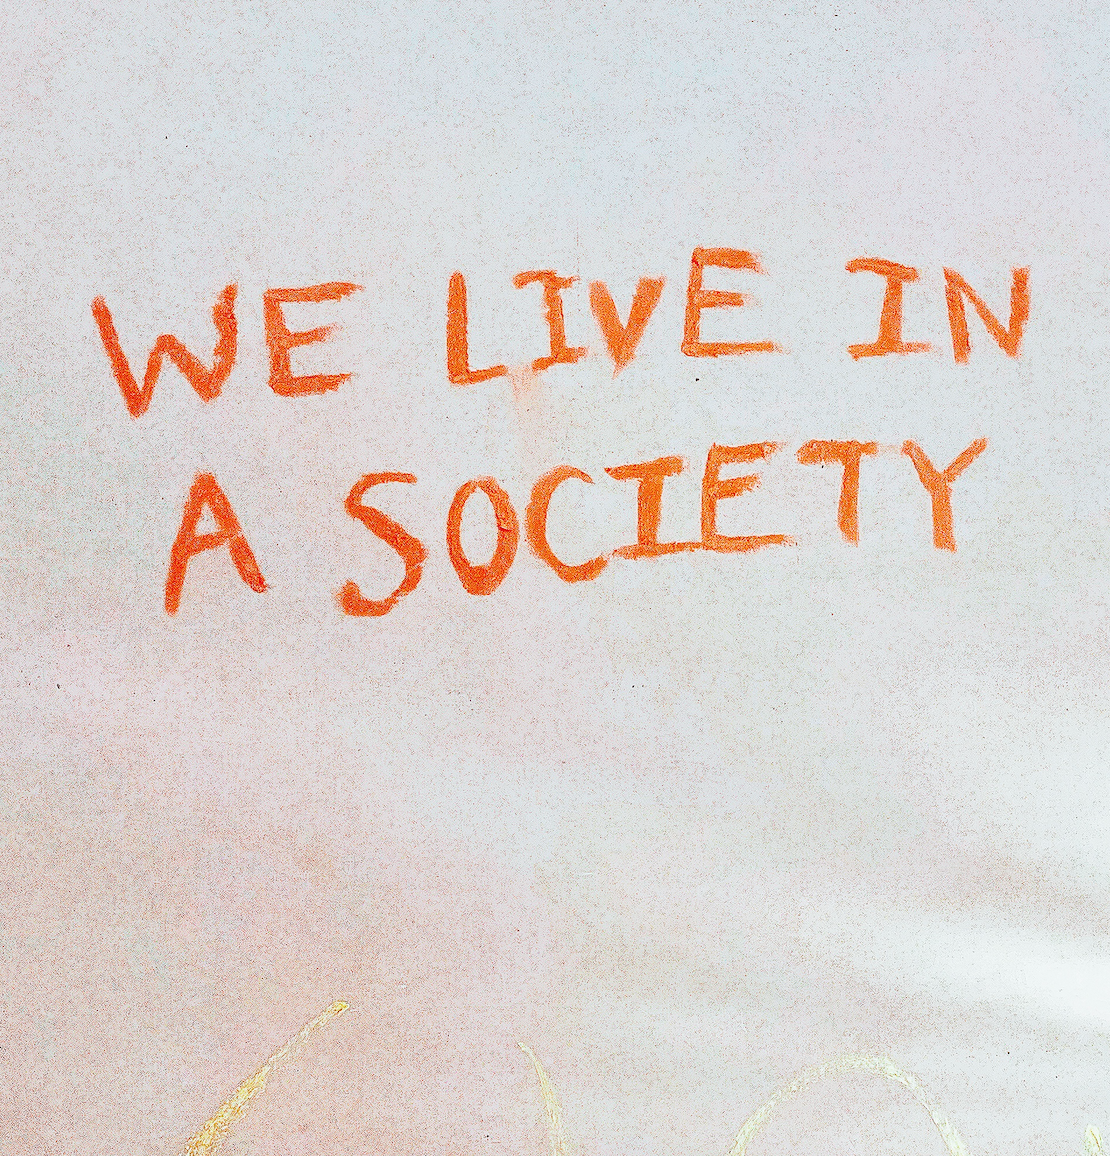 WE LIVE IN
A SOCIETY